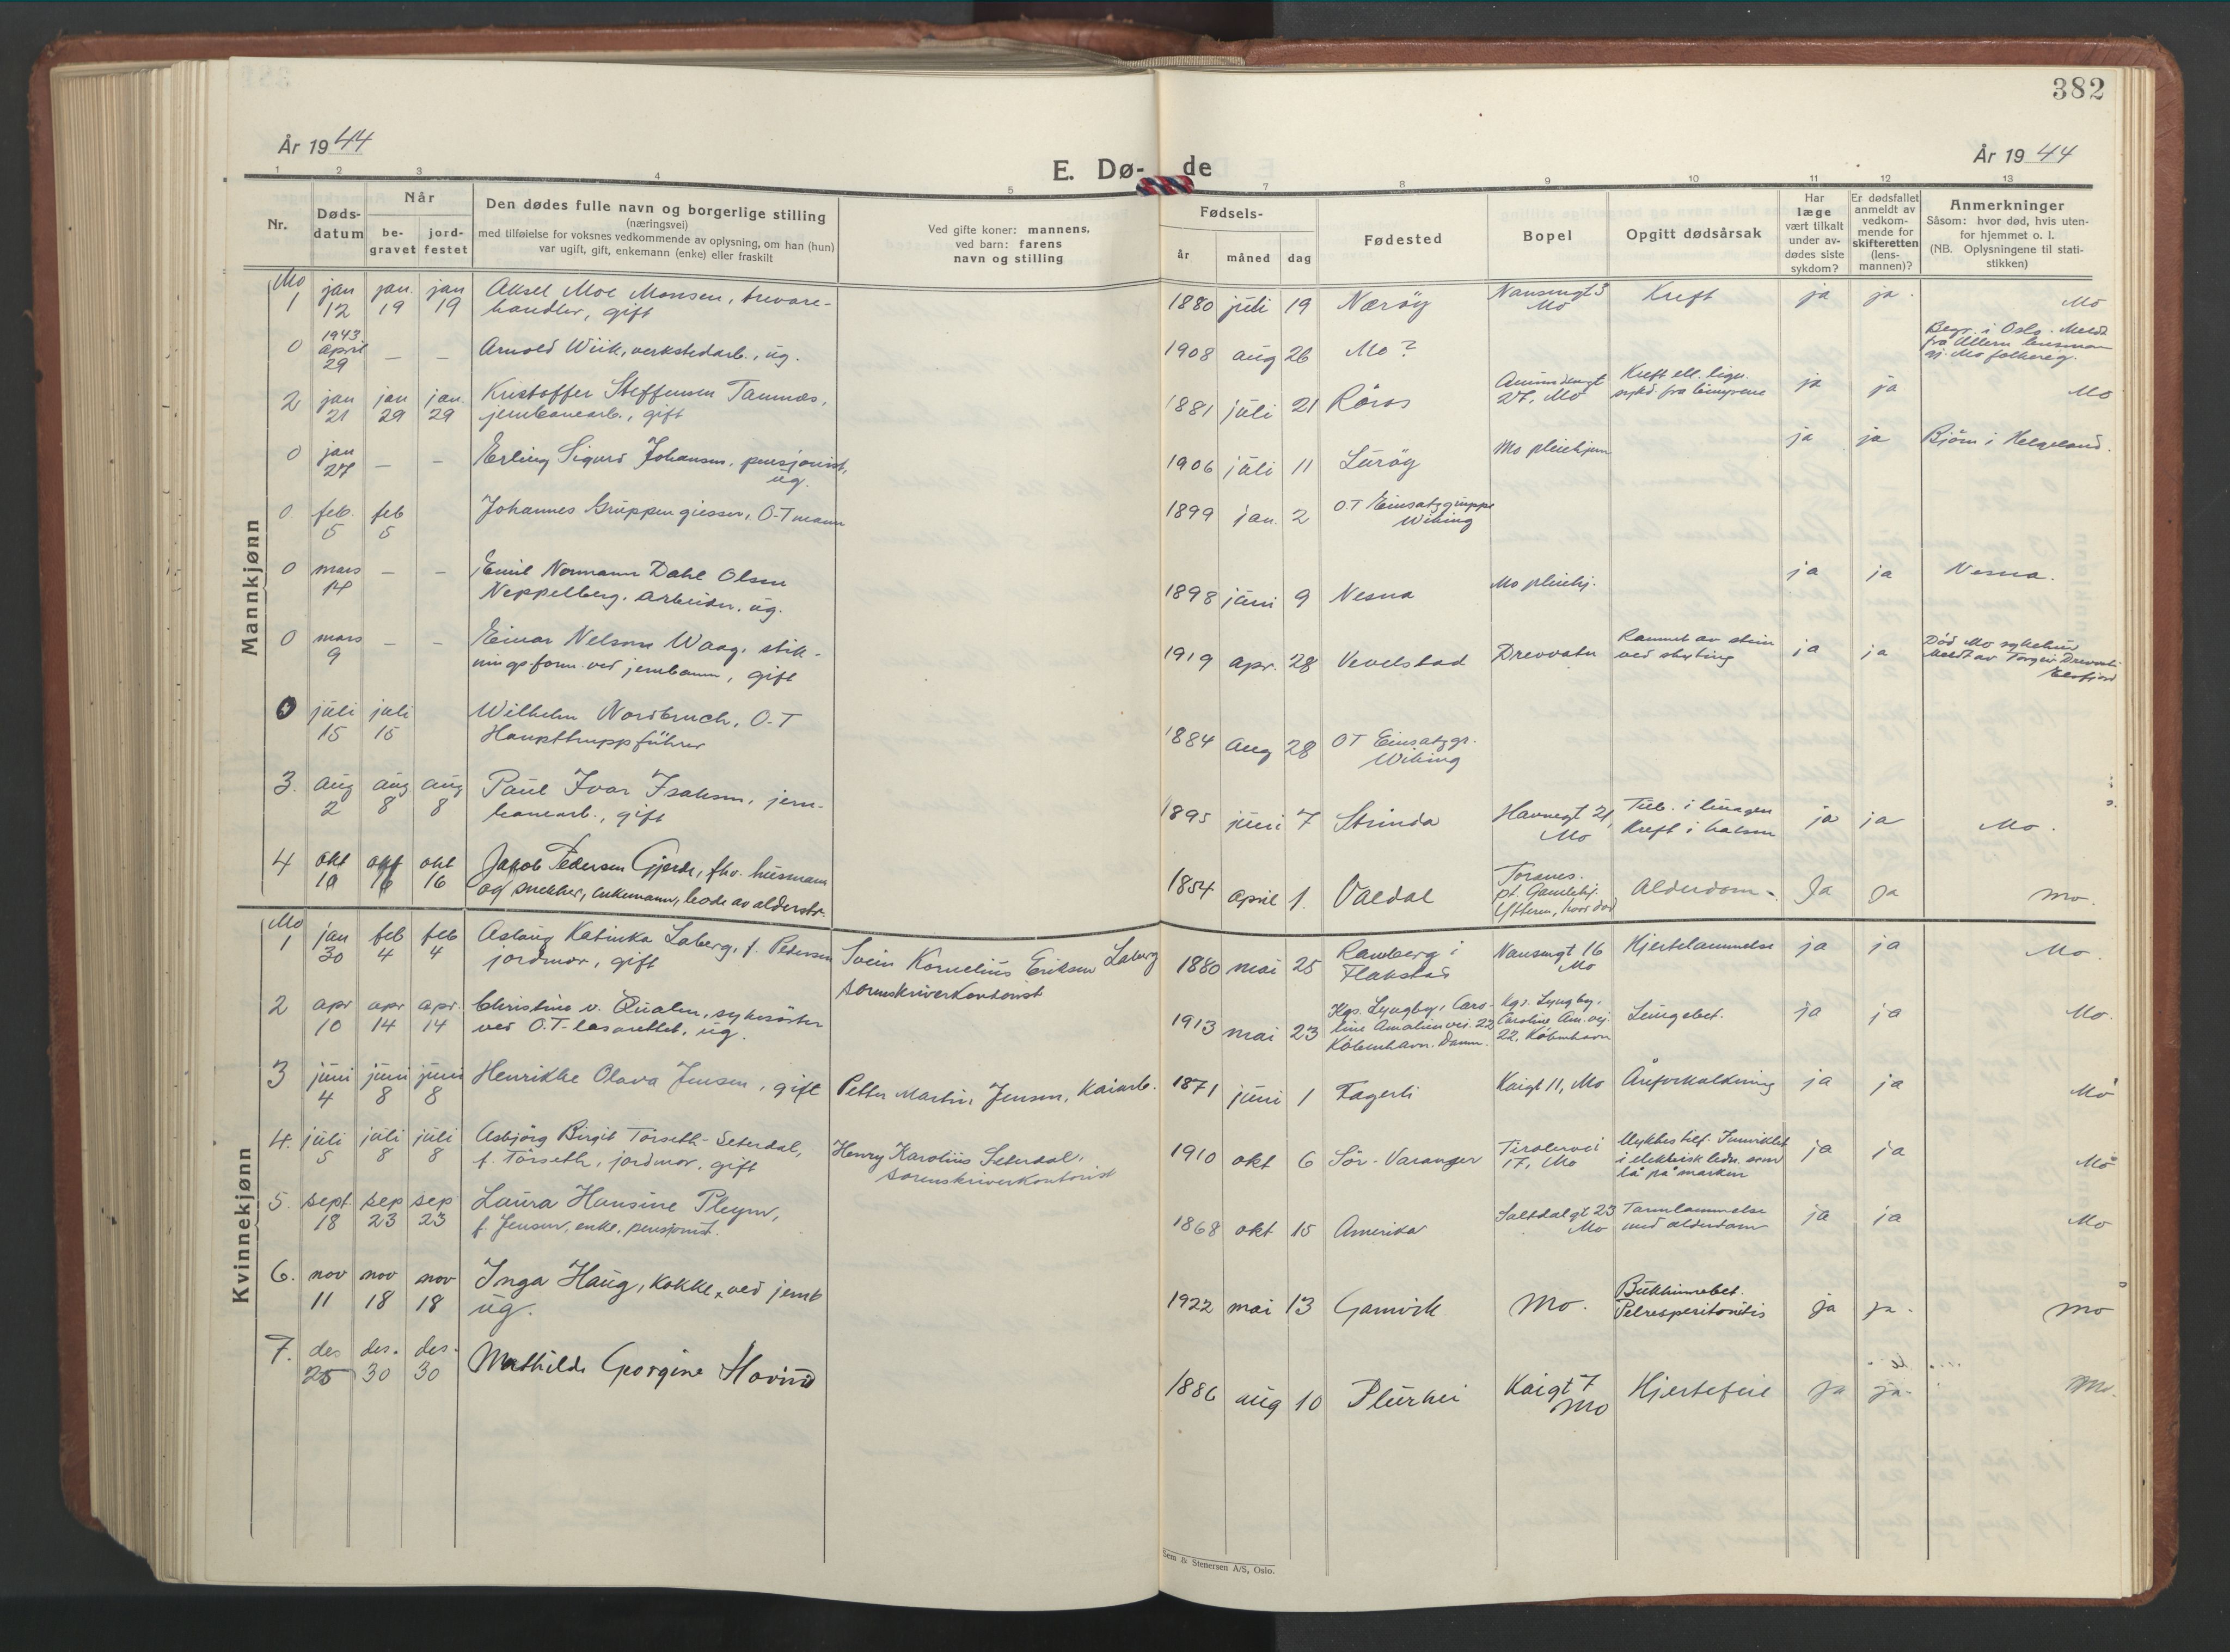 382
År 1944
År 1944
E. Dø- de
1 2 3 4 5 7 8 9 10 11 12 13
Nr.
Døds-
datum
Når
be-
gravet
jord-
festet
Den dødes fulle navn og borgerlige stilling
(næringsvei)
med tilføielse for voksnes vedkommende av oplysning, om han (hun)
var ugift, gift, enkemann (enke) eller fraskilt
Ved gifte koner: mannens,
ved barn: farens
navn og stilling
Fødsels-
år måned dag
Fødested
Bopel
Opgitt dødsårsak
Har
læge
vært tilkalt
under av-
dødes siste
sykdom?
Er dødsfallet
anmeldt av
vedkom-
mende for
skifteretten
(lens-
mannen)?
Anmerkninger
Såsom: hvor død, hvis uten-
for hjemmet o. l.
(NB. Oplysningene til stati-
stikken)
Mannkjønn
Mo
1 jan 12 jan. 19 jan 19 Aksel Moe Monsen, trevare-
handler, gift
1880 juli 19 Nærøy Nansengt 3
Mo
Kreft ja ja. Mo
0 1943. april 29 — — Arnold Wiik, verkstedarb., ug.
1908 aug 26 Mo?
Begr. i Oslo. Meldt
fra Ullern lensman
gj. Mo folkereg.
2 jan 21 jan 29 jan. 29 Kristoffer Steffensen Tamnes,
jernbanearb., gift
1881 juli 21 Röros
27, Mo
Kreft ell. lign.
sykd. fra
ja ja Mo
0 jan 27 — — Erling Sigurd Johansen, pensjonist,
ug.
1906 juli 11 Luröy Mo pleiehjem ja ja Bjørn i Helgeland.
0 feb. 5 feb 5 Johannes Gruppengiesser, O-T mann
1899 jan. 2 O.T Einsatzgruppe
Wiking
0 mars 14 — — Emil Normann Dahl Olsen
Neppelberg, arbeider, ug.
1898 juni 9 Nesna Mo pleiehj. ja ja Nesna.
0 mars 9 — — Einar Nelson Waag, stik-
ningsform. ved jernbanen, gift
1919 apr. 28 Vevelstad Drevvatn Rammet av stein
ved skyting
ja ja Död Mo sykehus
Meldt av Torgeir Drevvatn
Elsfjord
0 juli 15 juli 15 Wilhelm Nordbruch, O-T
Haupttruppführer
1884 aug 28 OT Einsatzgr.
Wiking
3. aug 2 aug 8 aug 8 Paul Ivar Isaksen, jern-
banearb., gift
1895 juni 7 Strinda Havnegt 21,
Mo
Tub. i lungen
Kreft i halsen
ja ja Mo.
4 okt 10 okt 16 okt 16 Jakob Pedersen Gjerde, fhv. husmann
og snekker, enkemann, levde av alderstr.
1854 april 1. Valdal Toranes.
pt. Gamlehj.
Ytteren, hvor död
Alderdom - Ja ja mo.
Kvinnekjønn
Mo
1 jan 30 feb 4 feb 4 Aslaug Katinka Laberg, f. Pedersen
jordmor, gift
Svein Kornelius Eriksen Laberg
sorenskriverkontorist
1880 mai 25 Ramberg i
Flakstad
Nansengt 16
Mo
Hjertelammelse ja ja Mo.
2 apr 10 apr 14 apr. 14 Christine v. Qualen, sykesöster
ved O.T-lasarettet, ug.
1913 mai 23 Kgs. Lyngby, Caro-
line Amalienvei. 22
Köbenhavn. Danm.
Kgs. Lyngby,
Caroline Am. vej
22, Köbenhavn
Lungebet. ja ja Mo.
3 juni 4 juni 8 juni 8 Henrikke Olava Jensen, gift Petter Martin Jensen, kaiarb.
1871 juni 1 Fagerli Kaigt 11, Mo Åreforkalkning ja ja Mo
4. juli 5 juli 8 juli 8 Asbjörg Birgit Törseth-Seterdal,
f. Törseth, jordmor, gift
Henry Karolius Seterdal,
sorenskriverkontorist
1910 okt 6 Sör-Varanger Tirolervei
17, Mo
Ulykkestilf. Innviklet
i elektrisk ledn. som
lå på marken
ja ja Mo
5. sept. 18 sep 23 sep 23 Laura Hansine Pleym,
f. Jensen, enke, pensjonist.
1868 okt 15 Amerika Saltdalgt 23
Mo
Tarmlammelse
med alderdom
ja ja Mo
6. nov 11 nov 18 nov 18 Inga Haug, kokke, ved jernb
ug.
1922 mai 13 Gamvik Mo. Bukhinnebet.
Pelvesperitonitis
ja ja. Mo
7. des 25 des. 30 des. 30 Mathilde Georgine Hovind
1886 aug 10 Plurhei Kaigt 7
Mo
Hjertefeil ja ja. Mo.
Sem & Stenersen A/S, Oslo.